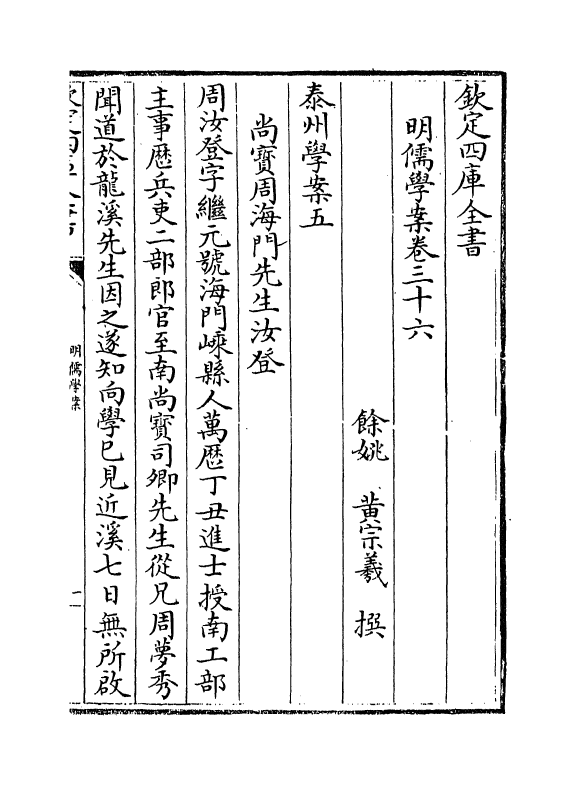 欽定四庫全書
明儒學案卷三十六
餘姚 黃宗羲 撰
泰州學案五
尚寶周海門先生汝登
周汝登字繼元號海門嵊縣人萬歷丁丑進士授南工部
主事歷兵吏二部郎官至南尚寶司卿先生從兄周夢秀
聞道於龍溪先生因之遂知向學已見近溪七日無所啟
明儒學案